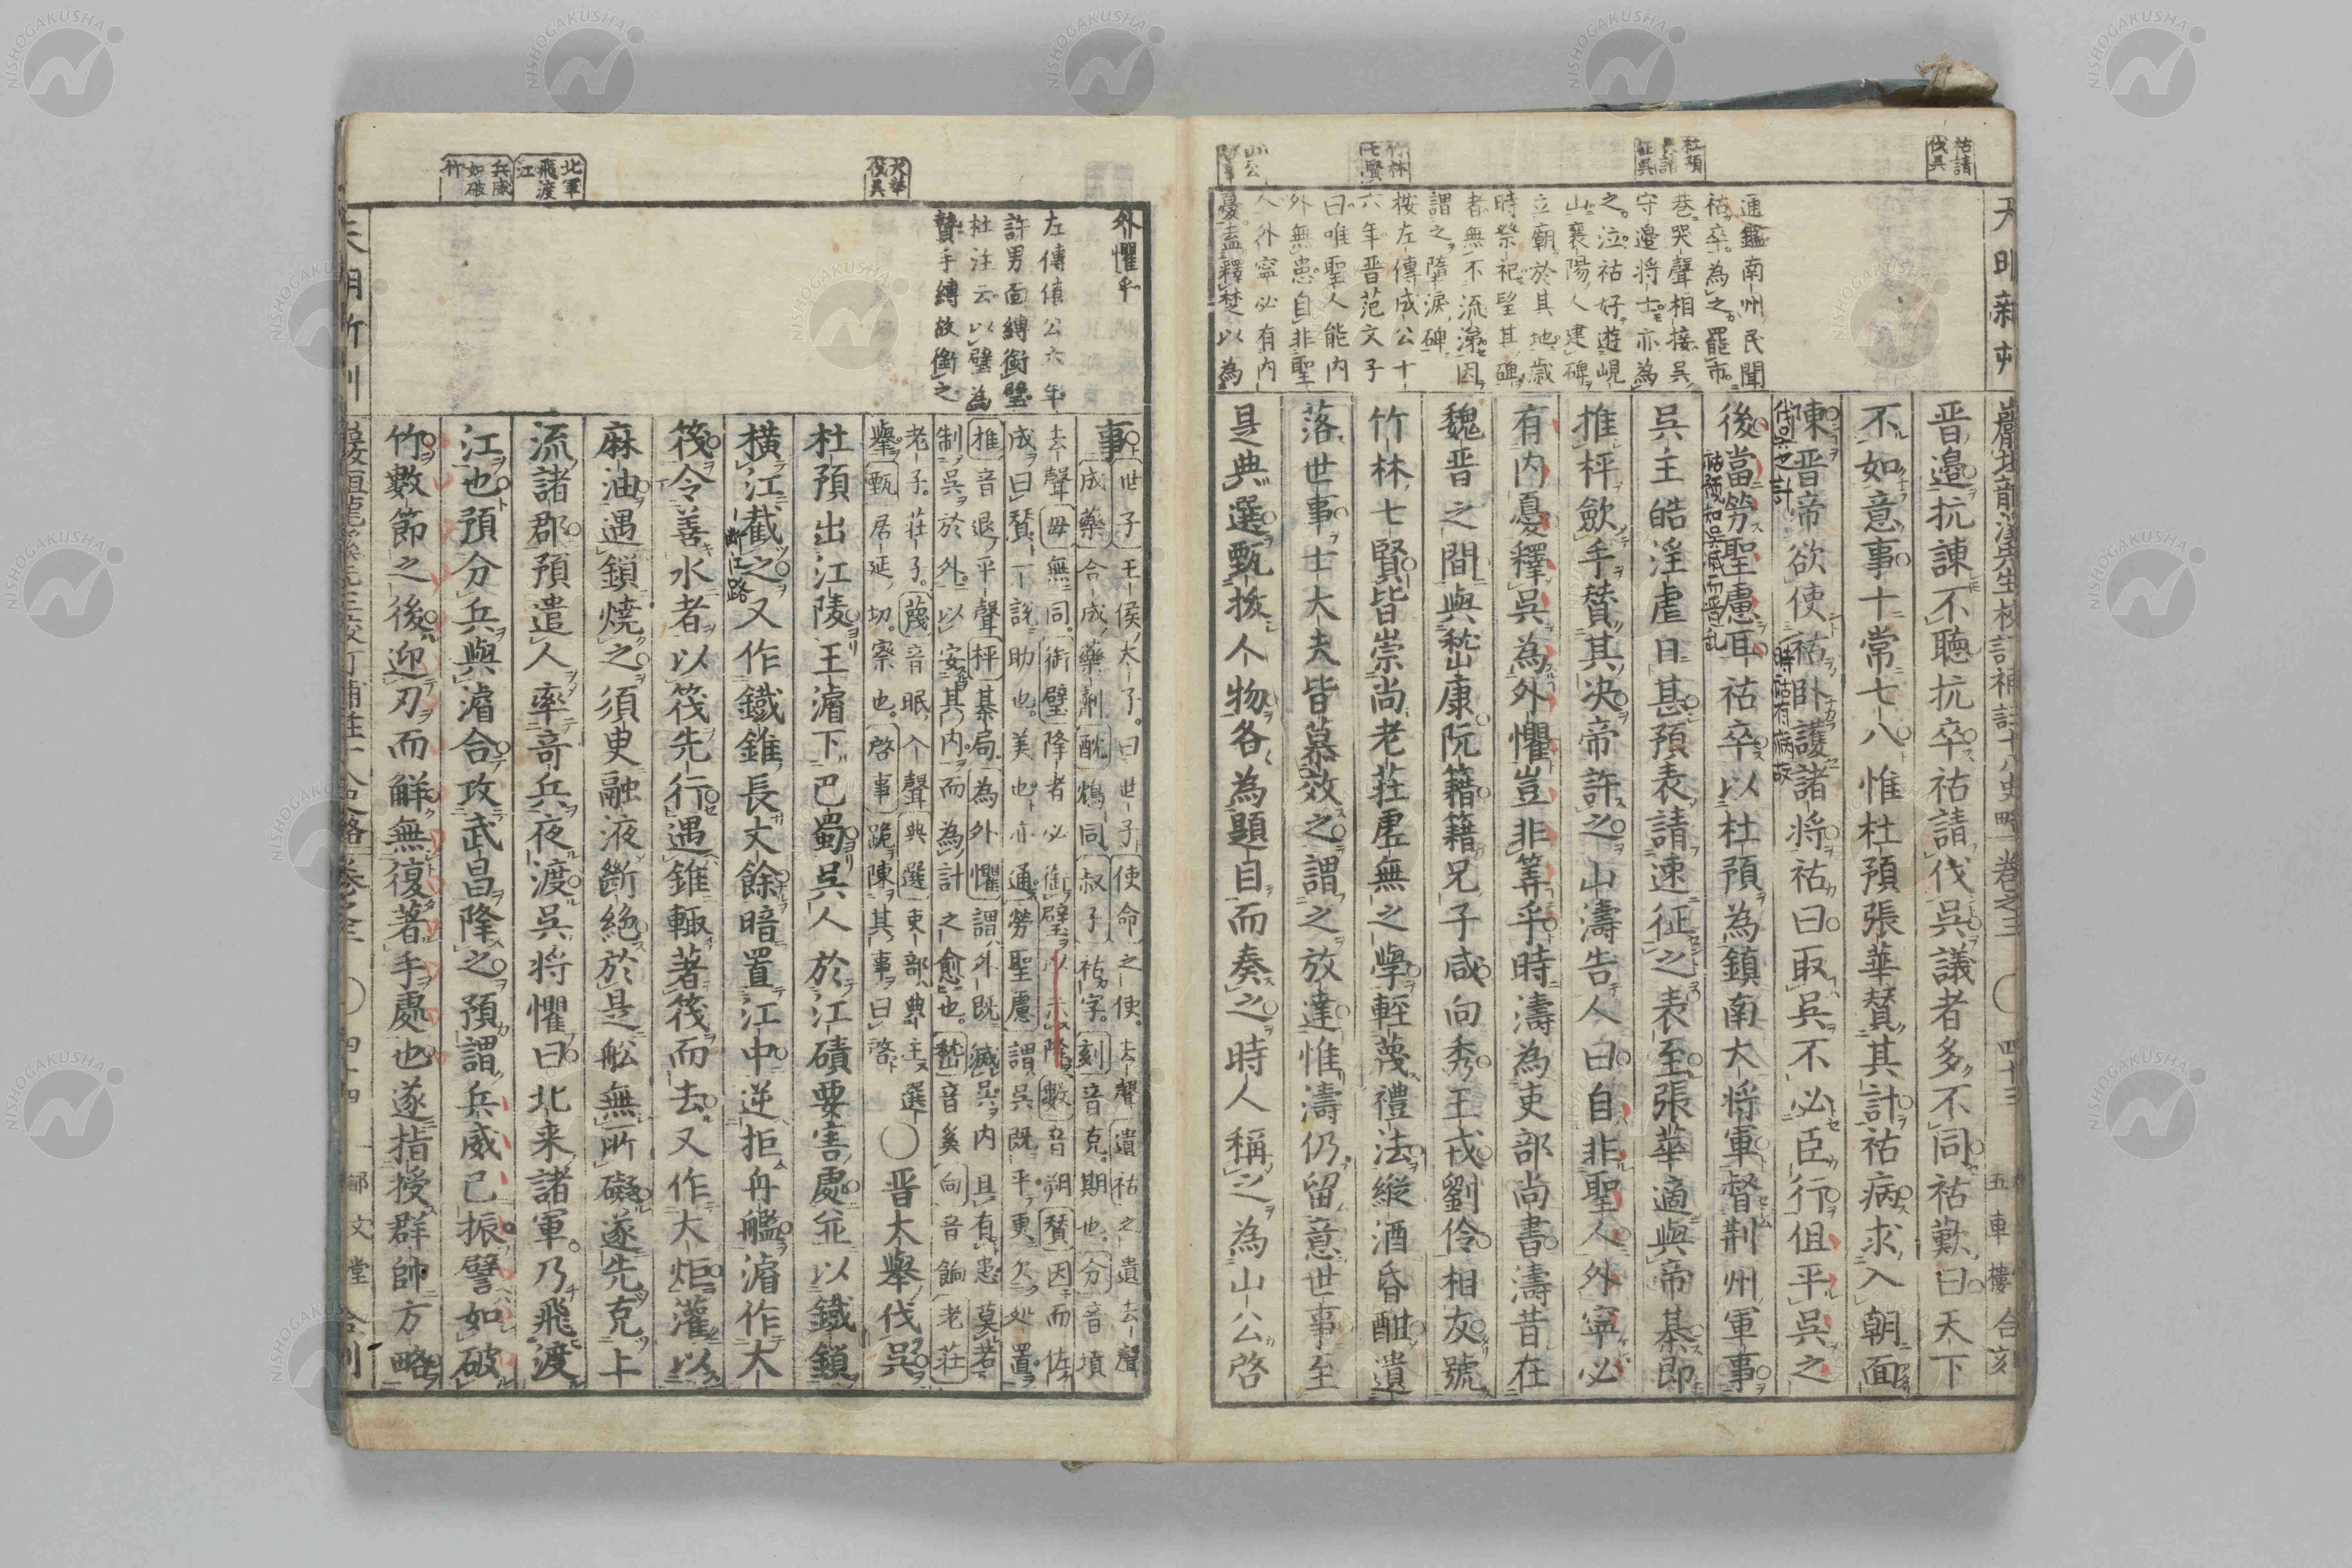 祜請
伐吳
杜預
表請
征吳
竹林
七賢
山公
啓事
通鑑南州民聞
祜卒為之罷市
巷哭聲相接吳
守邊將士亦為
之泣祜好遊峴
山襄陽人建碑
立廟於其地歲
時祭祀望其碑
者無不流涕因
謂之墮淚碑
按左傳成公十
六年晋范文子
曰唯聖人能内
外無患自非聖
人外寧必有内
憂盍釋楚以為
晋邉抗諌不聴抗卒祜請伐吳議者多不同祜歎曰天下
不如意事十常七八惟杜預張華賛其計祜病求入朝面
陳晋帝欲使祜卧護諸将祜曰取吳不必臣行但平吳之
伐吳之計
時祜有病故
後當勞聖慮耳祜卒以杜預為鎮南大将軍督荆州軍事
祜預知吳滅而晋乱
吳主皓淫虐日甚預表請速征之表至張華適與帝棊即
推枰歛手賛其决帝許之山濤告人曰自非聖人外寧必
有内憂釋吳為外懼豈非筭乎時濤為吏部尚書濤昔在
魏晋之間與嵆康阮籍籍兄子咸向秀王戎劉伶相友號
竹林七賢皆崇尚老莊虚無之學輕蔑禮法縱酒昏酣遺
落世事士大夫皆慕效之謂之放達惟濤仍留意世事至
是典選甄拔人物各為題目而奏之時人稱之為山公啓
卷之三 〇 四十三 五車樓合刻
大擧
伐吳
北軍
飛渡
江
兵威
如破
竹
外懼乎
左傳僖公六年
許男面縛銜璧
杜注云以璧為
贄手縛故銜之
事 世子王侯太子曰世子使命之使去聲遺祜之遺去聲
成藥合成藥劑酖鴆同叔子祜字刻音克期也分音墳
去聲毋無同銜璧降者必銜璧數音朔賛因而佐
成曰賛一説助也美也亦通勞聖慮謂吳既平更欠処置
推音退平聲枰棊局為外懼謂外既滅吳内且有患莫若
制吳於外以安其内而為計之愈也嵆音奚向音餉老莊
老子莊子蔑音眠入聲典選吏部典主選
擧甄居延切察也啓事跪陳其事曰啓〇晋大擧伐吳
杜預出江陵王濬下巴蜀吳人於江磧要害處並以鐵鎖
橫江截之又作鐵錐長丈餘暗置江中逆拒舟艦濬作大
斷江路
筏令善水者以筏先行遇錐輙著筏而去又作大炬灌以
麻油遇鎖燒之須臾融液斷絶於是舩無所礙遂先克上
流諸郡預遣人率竒兵夜渡吳将懼曰北来諸軍乃飛渡
江也預分兵與濬合攻武昌降之預謂兵威已振譬如破
竹數節之後迎刃而解無復著手處也遂指授群帥方略
卷之三 〇 四十四 郁文堂合刻